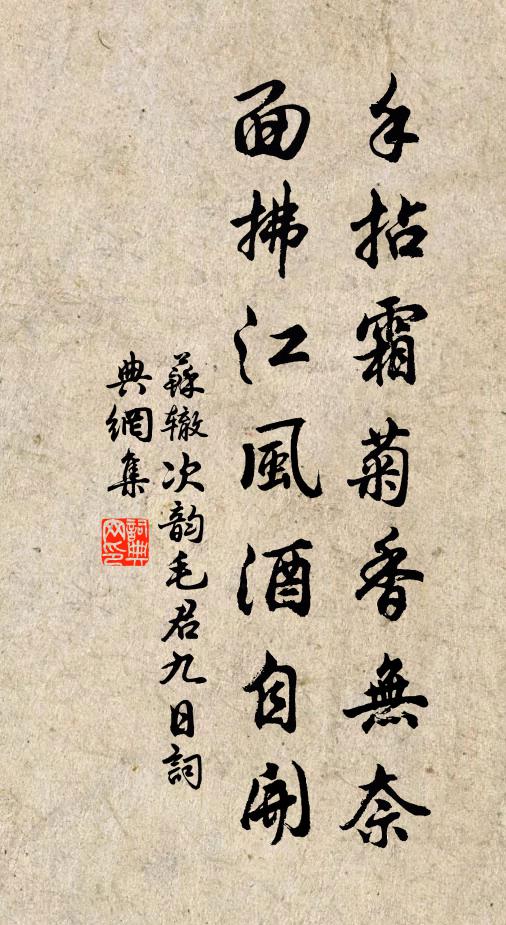 手拈霜菊香無奈
面拂江風酒自開
蘇辙次韵毛君九日詞
典網集
詞典网印